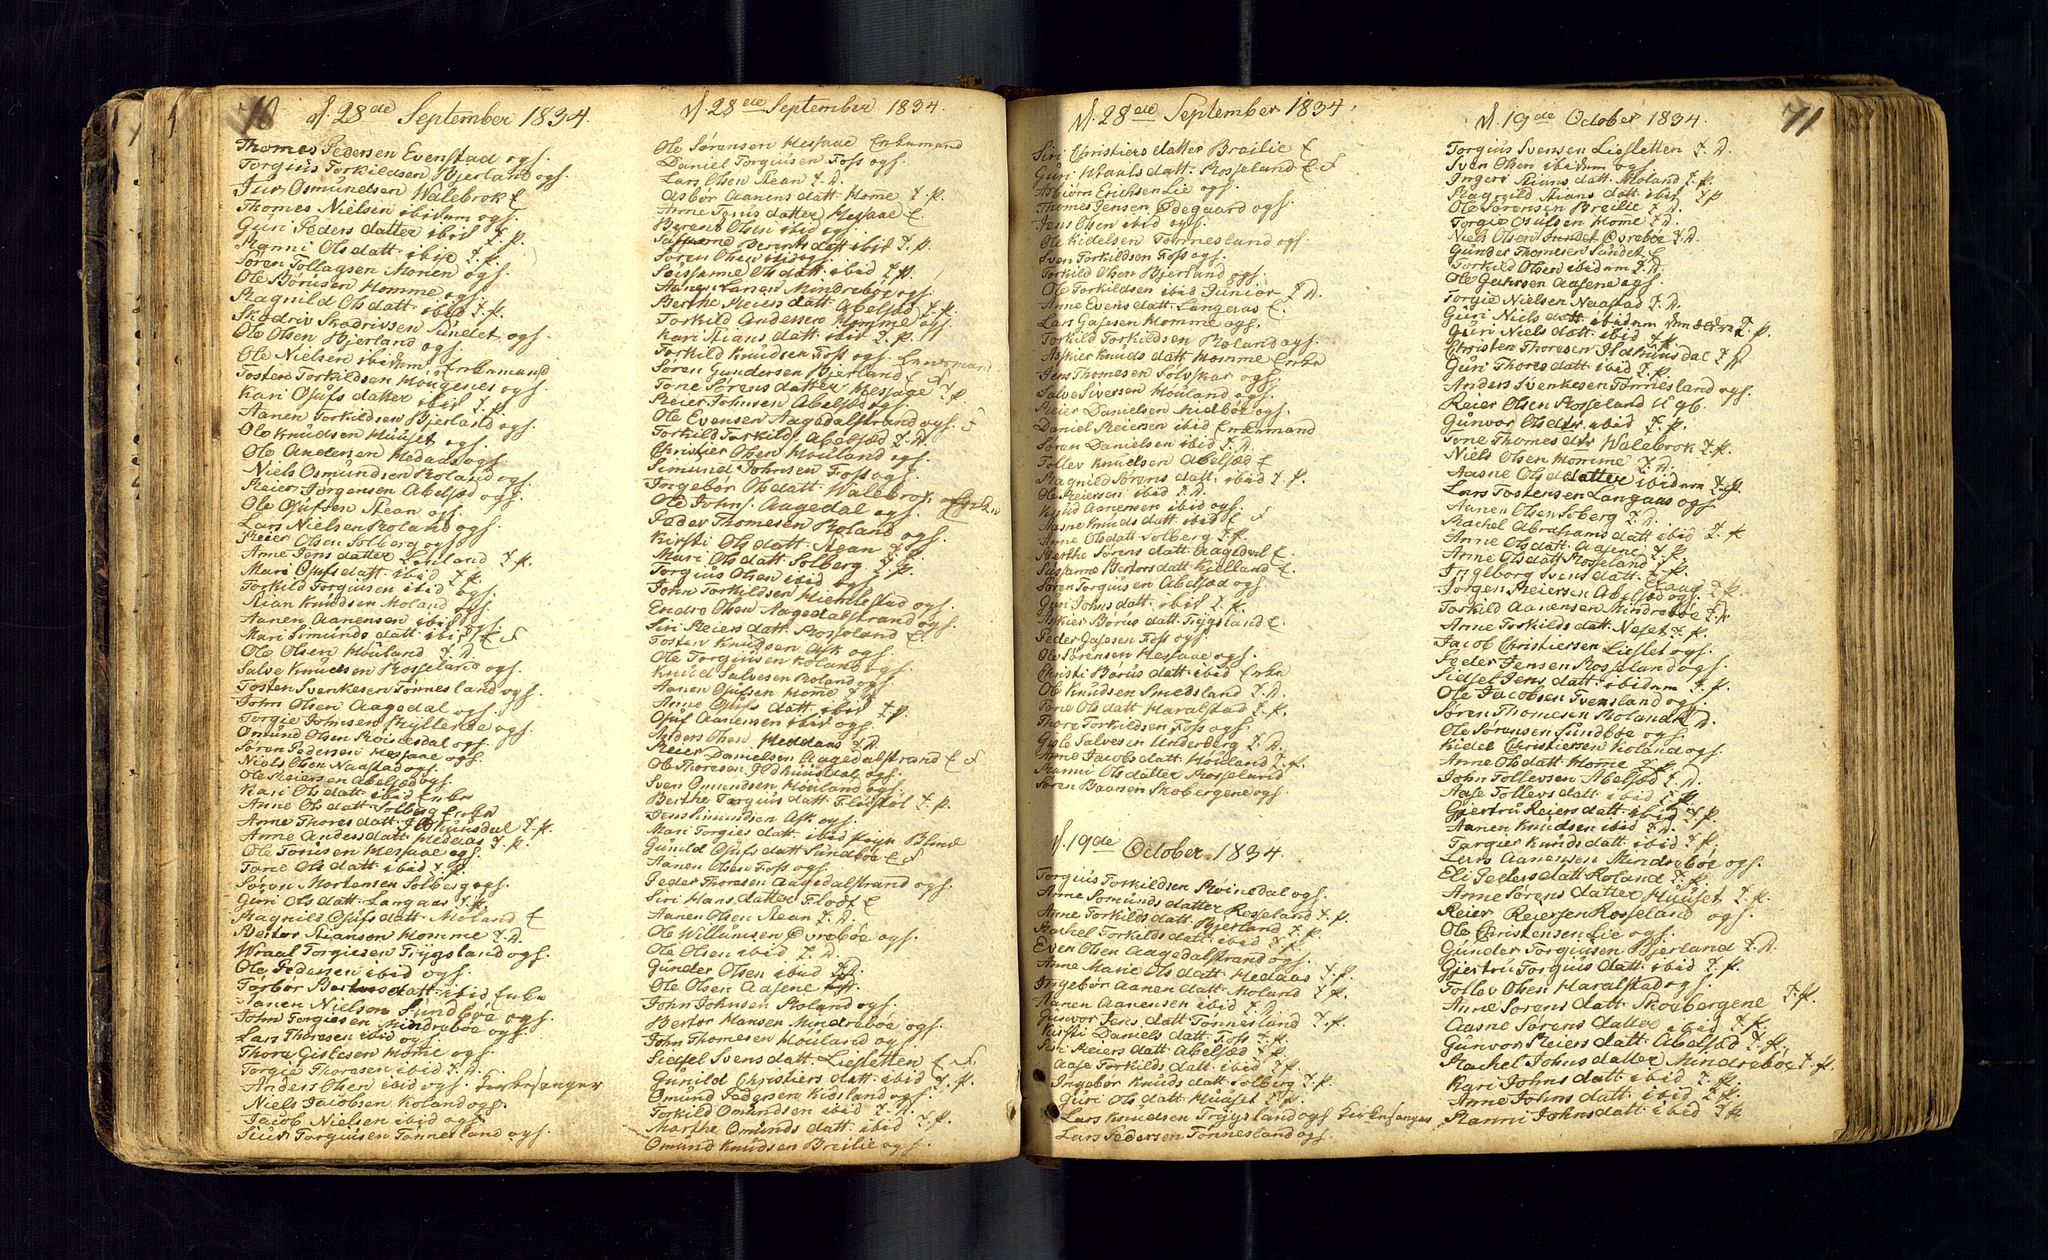 70
d. 28de September 1834.
Thomes Pedersen Evenstad ogf.
Torgius Torkildsen Bjerland ogf.
Siur Osmundsen Walebrok E
Thomes Nielsen ibidum ogf.
Guri Peders datter ibid T. P.
Ranni Ols datt. ibid T. P.
Søren Tollagsen Monen ogf.
Ole Børusen Homme ogf.
Ragnild Ols datt. ibid T. P.
Skadriv Skadrivsen Sundet ogf.
Ole Olsen Bjerland ogf.
Ole Nielsen ibidum, Enkemand
Tosten Torkildsen Hougenes ogf.
Kari Osufs datter ibid T. P.
Aanen Torkildsen Bjerland ogf.
Ole Knudsen Huuset ogf.
Ole Andersen Hedaas ogf.
Niels Osmundsen Roland ogf.
Reier Jørgensen Abelsæd ogf.
Ole Osufsen Stean ogf.
Lars Nielsen Roland ogf.
Reier Olsen Solberg ogf.
Anne Jens datter Lonland T. P.
Mari Osufs datt. ibid T. P.
Torkild Torgiusen ibid ogf.
Stian Knudsen Moland ogf.
Aanen Aanensen ibid ogf.
Mari Simunds datt. ibid E F
Ole Olsen Houland T. D.
Salve Knudsen Rosseland ogf.
Tosten Svenkesen Tønnesland ogf.
John Olsen Aagedal ogf.
Torgie Johnsen Ryllende ogf.
Omund Olsen Røinesdal ogf.
Søren Pedersen Hessaae ogf.
Niels Olsen Naastad ogf.
Ole Reiersen Abelsæd ogf.
Kari Ols datt ibid Enke
Anne Ols datt Solberg Enke
Anne Thores datt. Jødkunsdal T. P.
Anne Anders datt. Hedaas T. P.
Ole Tonusen Hessaae ogf.
Tone Ols datt. ibid T. P.
Søren Mortensen Solberg ogf.
Guri Ols datt. Langaas T. P.
Ragnild Osufs datt. Moland E
Bertor Stiansen Homme T. D.
Wraal Torgiusen Trygsland ogf.
Ole Pedersen ibid ogf.
Torbør Bertors datt. ibid Enke
Aanen Nielsen Sundbøe ogf.
John Torgiesen Mindrebøe ogf.
Lars Thoresen ibid ogf.
Thore Gislesen Home ogf.
Torgie Thoresen ibid T. D.
Anders Olsen ibid ogf. Forkesanger
Niels Jacobsen Koland ogf.
Jacob Nielsen ibid ogf.
Siur Torgiusen Tonnersland ogf.
d. 28de September 1834.
Ole Sørensen Hessaae Enkemand
Daniel Torgiusen Foss ogf.
Lars Olsen Stean T. D.
Asbør Aanens datt. Home T. P.
Anne Tonus datter Hessaae E.
Berent Olsen ibid ogf.
Susanne Berents datt ibid T. P.
Søren Olsen ibid ogf.
Soissanne Ols datt. ibid T. P.
Aanen Larsen Mindrebøe ogf.
Berthe Reiers datt. Abelsæd T. P.
Torkild Andersen Homme ogf.
Kari Stians datt. ibid T. P.
Torkild Knudsen Foss ogf. Enkemand
Søren Gundersen Bjerland E F
Tone Sørens datter Hessaae T. P.
Reier Johnsen Abelsæd ogf.
Ole Evensen Aagedalstrand ogf.
Torkild Torkilds. Abelsæd T. D.
Christier Olsen Houland ogf.
Simund Johnsen Foss ogf.
Ingebør Ols datt. Walebrok
Ole Johns. Aagedal ogf.
Peder Thomesen Roland ogf.
Kirsti Ols datt. Stean T. P.
Mari Ols datt. Solberg T. P.
Torgius Olsen ibid ogf.
John Torkildsen Hiemlestad ogf.
Endre Olsen Aagedalstrand ogf.
Siri Reiers datt. Rosseland E
Tosten Knudsen Ask ogf.
Ole Torgiusen Koland ogf.
Knud Salvesen Roland ogf.
Aanen Osufsen Home T. D.
Anne Osufs datt. ibid T. P.
Osuf Aanensen ibid ogf.
Anders Olsen Heddaas T. D.
Reier Danielsen Aagedalstrand E F
Ole Thoresen Jødkunsdal ogf.
Sven Omundsen Houland ogf.
Berthe Torgius datt. Flustøl T. P.
Jens Simundsen Ask ogf.
Mari Torgies datt. ibid Pige Blind
Gunild Osufs datt Sundbøe E F
Aanen Olsen Foss ogf.
Peder Thoresen Aagedalstrand ogf.
Siri Hans datter Floot E
Aanen Olsen Stean T. D.
Ole Willumsen Øvrebøe ogf.
Ole Olsen ibid T. D.
Gunder Olsen ibid T. D.
Ole Olsen Aasene
John Johnsen Roland ogf.
Bertor Hansen Mindrebøe ogf.
John Thomesen Houland ogf.
Sidsel Svens datt. Liesletten E F.
Gunild Christiers datt. ibid T. P.
Omund Pedersen Kidsland ogf.
Torkild Omundsen ibid T. D.
Marthe Omunds datt. ibid T. P.
Omund Knudsen Breilie ogf.
d. 28de September 1834.
Siri Christiers datter Breilie E
Guri Wraals datt. Rosseland E F
Asbiørn Erichsen Lie ogf.
Thomes Jensen Ødegaard ogf.
Jens Olsen ibid ogf.
Ole Kidelsen Tonnesland ogf.
Sven Torkildsen Foss ogf.
Torkild Olsen Bjerland ogf.
Ole Torkildsen ibid Junior T. D.
Anne Evens datt. Langeraas E.
Lars Gasesen Homme ogf.
Torkild Torkildsen Roland ogf.
Askier Knuds datt Homme Enke
Jens Thomesen Solvskar ogf.
Salve Siversen Houland ogf.
Reier Danielsen Midbøe ogf.
Daniel Reiersen ibid Enkemand
Søren Danielsen ibid T. D.
Tollev Knudsen Abelsæd E
Ragnild Sørens datt. ibid T. P.
Ole Reiersen ibid T. D.
Knud Aanensen ibid ogf.
Aasne Knuds datt. ibid E F
Anne Ols datt Solberg T. P.
Berthe Sørens datt. Aagedal E.
Susanne Bertors datt Kjelland E.
Søren Torgiusen Abelsæd ogf.
Guri Johns datt. ibid T. P.
Askier Børus datt. Trygsland E.
Peder Gasesen Foss ogf.
Ole Sørensen Hessaae ogf.
Christi Børus datt. ibid Enke
Ole Knudsen Smedsland T. D.
Tone Ols datt Haralstad T. P.
Thore Torkildsen Foss ogf.
Gisle Salvesen Underberg T. D.
Anne Jacobs datt Houland T. P.
Ranni Ols datter Rosseland
Søren Baarsen Skobergene ogf.
d. 19de October 1834.
Torgius Torkildsen Røinesdal ogf.
Anne Somunds datter Rosseland T. P.
Anne Torkilds datt. Bjerland T. P.
Rachel Torkilds datt. ibid T. P.
Even Olsen Aagedalstrand ogf.
Anne Marie Ols datt. Hedaas T. P.
Ingebør Aanen datt. Moland T. P.
Aanen Aanensen ibid T. D.
Gunvor Jens. datt Tonnesland T. P.
Kirsti Daniels datt. Foss T. P.
Siri Reiers datt. Abelsæd T. P.
Aase Torkilds datt. ibid T. P.
Ingebør Knuds datt. Solberg T. P.
Guri Ols datt. Huuset T. P.
Lars Knudsen Trygsland ogf Forkesanger
Lars Pedersen Tonnesland ogf.
71
d. 19de October 1834.
Torgius Svensen Liesletten T. D.
Sven Olsen ibidum ogf.
Ingeri Stians datt. Moland T. P.
Ragnild Stians datt. ibid T P
Ole Sørensen Breilie T. D.
Torgie Osufsen Home T. D.
Niels Olsen Sundet Øvrebøe T. D.
Gunder Thomesen Sundet E
Torkild Olsen ibidum T. D.
Ole Guttormsen Aasene ogf.
Torgie Nielsen Naastad T. D.
Guri Niels datt. ibidum den ældre T. P.
Guri Niels datt. ibid T. P.
Christen Thoresen Jødkunsdal T. D.
Guri Thores datt. ibid T. P.
Anders Svenkesen Tonnesland ogf.
Reier Olsen Rosseland U gb.
Gunvor Ols dtr ibid T. P.
Tone Thomes dtr Walebrok T. P.
Niels Olsen Homme T. D.
Aasne Ols datter ibidum T. P.
Lars Tostensen Langaas ogf.
Aanen Olsen Solberg T. D.
Rachel Abrahams datt ibid T. P.
Anne Ols datt. Aasene T. P.
Anne Ols datt Rosseland T. P.
Ingeborg Svens datt. Haag T. P.
Jorgen Reiersen Abelsæd ogf.
Torkild Aanensen Mindrebøe T. D.
Anne Torkilds datt. Neset T. P.
Jacob Christiersen Lieslet ogf.
Peder Jensen Rosseland ogf.
Sidsel Jens. datt. ibidum T. P.
Ole Jacobsen Ivensland ogf.
Søren Thomesen Roland T. D.
Ole Sørensen Sundbøe ogf.
Kidel Christiersen Koland ogf.
Anne Ols datt. Home T. P.
John Tollevsen Abelsæd T. D.
Aase Tollevs datt. ibid T. P.
Gjertru Reiers datt. ibid T. P.
Aanen Knudsen ibid T. D.
Targier Knuds datt. ibid T. P.
Lars Aanensen Mindrebøe ogf.
Eli Peders datt. Roland T. P.
Anne Sørens datter Huuset T. P.
Reier Reiersen Rosseland ogf.
Ole Christensen Lie ogf.
Gunder Torgiusen Bjerland T. D.
Gjertru Torgius datt. ibid T. P.
Tollev Olsen Haralstad ogf.
Anne Sørens datt. Skobergene T. P.
Aasne Sørens datter ibid T. P.
Gunvor Reiers datt. Abelsæd T. P.
Rachel Johns datter Mindrebøe T. P.
Kari Johns datt. ibid T. P.
Anne Johns datt. ibid T. P.
Ranni Johns datt. ibid T. P.